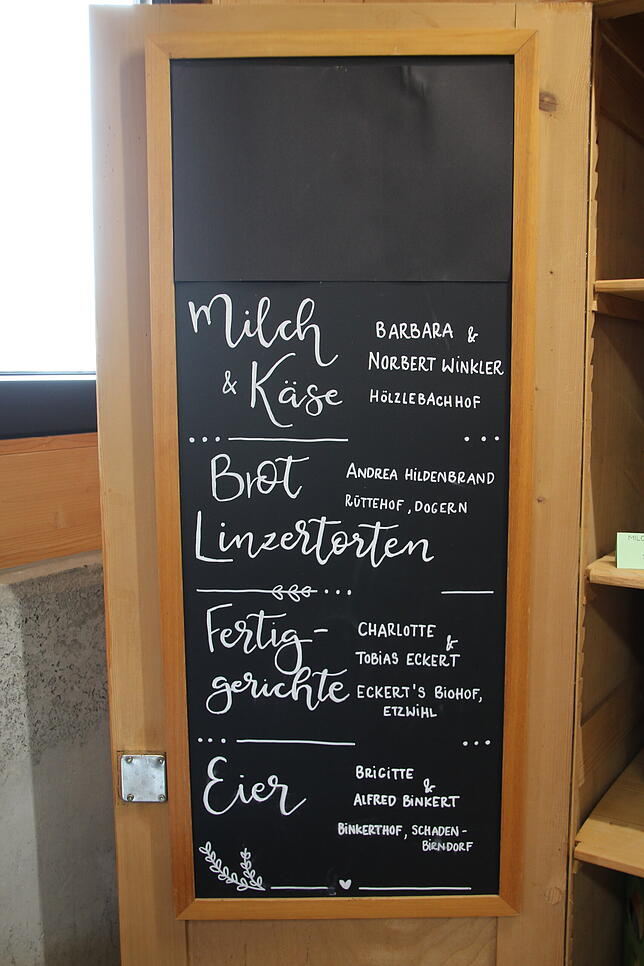 Milch
& Käse
BARBARA &
NORBERT WINKLER
HÖLZLEBACHHOF
Brot
Linzertorten
ANDREA HILDENBRAND
RÜTTEHOF, DOGERN
Fertig-
gerichte
CHARLOTTE
&
TOBIAS ECKERT
ECKERT'S BIOHOF,
ETZWIHL
Eier
BRIGITTE
&
ALFRED BINKERT
BINKERTHOF, SCHADEN-
BIRNDORF